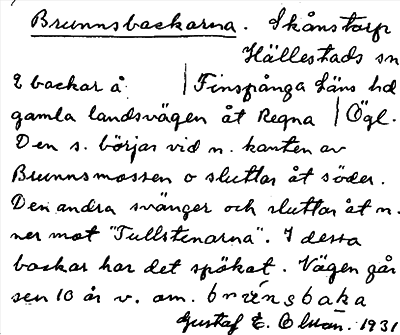 Brunnsbackarna. Skånstorp
Hällestads sn
2 backar å | Finspånga läns hd
gamla landsvägen åt Regna | Ögl.
Den s. börjar vid n. kanten av
Brunnsmossen o sluttar åt söder.
Den andra svänger och sluttar åt n.
ner mot "Tullstenarna". I dessa
backar har det spökat. Vägen går
sen 10 år v. om.
Gustaf E. Olsson. 1931